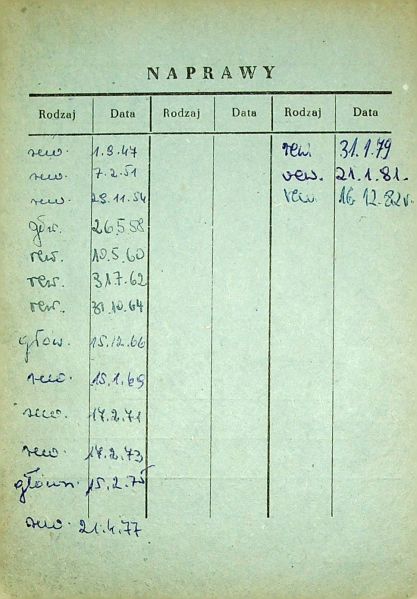 NAPRAWY
Rodzaj Data Rodzaj Data Rodzaj Data
rew. 1.9.47 rew. 31.1.79
rew. 7.2.51 rew. 21.1.81.
rew. 29.11.54 rew. 16.12.82r.
głów. 26.5.58
rew. 10.5.60
rew. 31.7.62
rew. 31.10.64
głów. 15.12.66
rew. 15.1.69
rew. 17.2.71
rew. 17.2.73
główn. 15.2.75
rew. 21.4.77